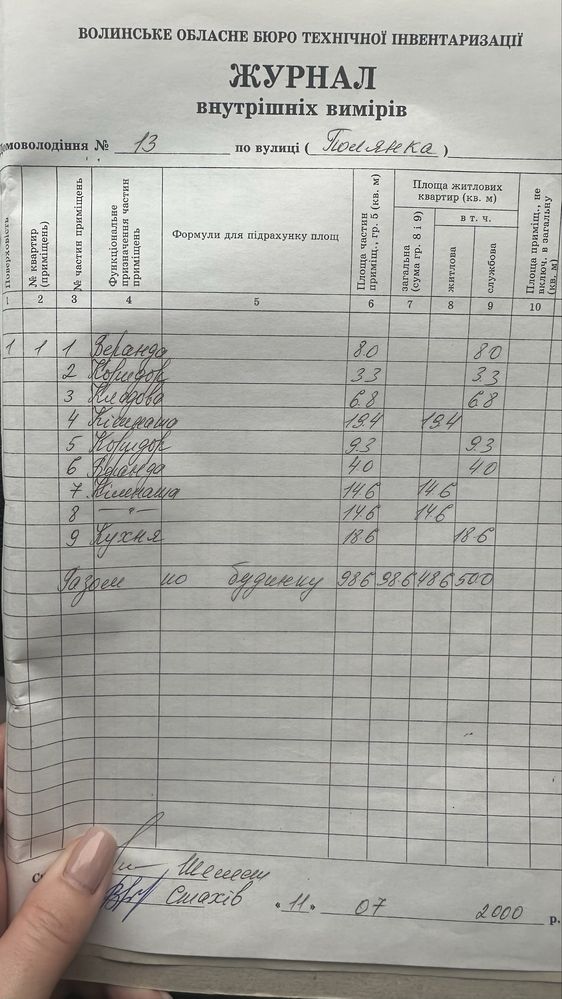 ВОЛИНСЬКЕ ОБЛАСНЕ БЮРО ТЕХНІЧНОЇ ІНВЕНТАРИЗАЦІЇ
ЖУРНАЛ
внутрішніх вимірів
домоволодіння № 13 по вулиці ( Полянка )
Поверховість
№ квартир (приміщень)
№ частин приміщень
Функціональне призначення частин приміщень
Формули для підрахунку площ
Площа частин приміщ., гр. 5 (кв. м)
Площа житлових квартир (кв. м)
загальна (сума гр. 8 і 9)
в т. ч.
житлова
службова
Площа приміщ., не включ. в загальну (кв. м)
1 2 3 4 5 6 7 8 9 10
1 1 1 Веранда 8.0 8.0
2 Коридор 3.3 3.3
3 Кладова 6.8 6.8
4 Кімната 19.4 19.4
5 Коридор 9.3 9.3
6 Веранда 4.0 4.0
7 Кімната 14.6 14.6
8 —"— 14.6 14.6
9 Кухня 18.6 18.6
Разом по будинку 98.6 98.6 48.6 50.0
Стахів «11» 07 2000 р.